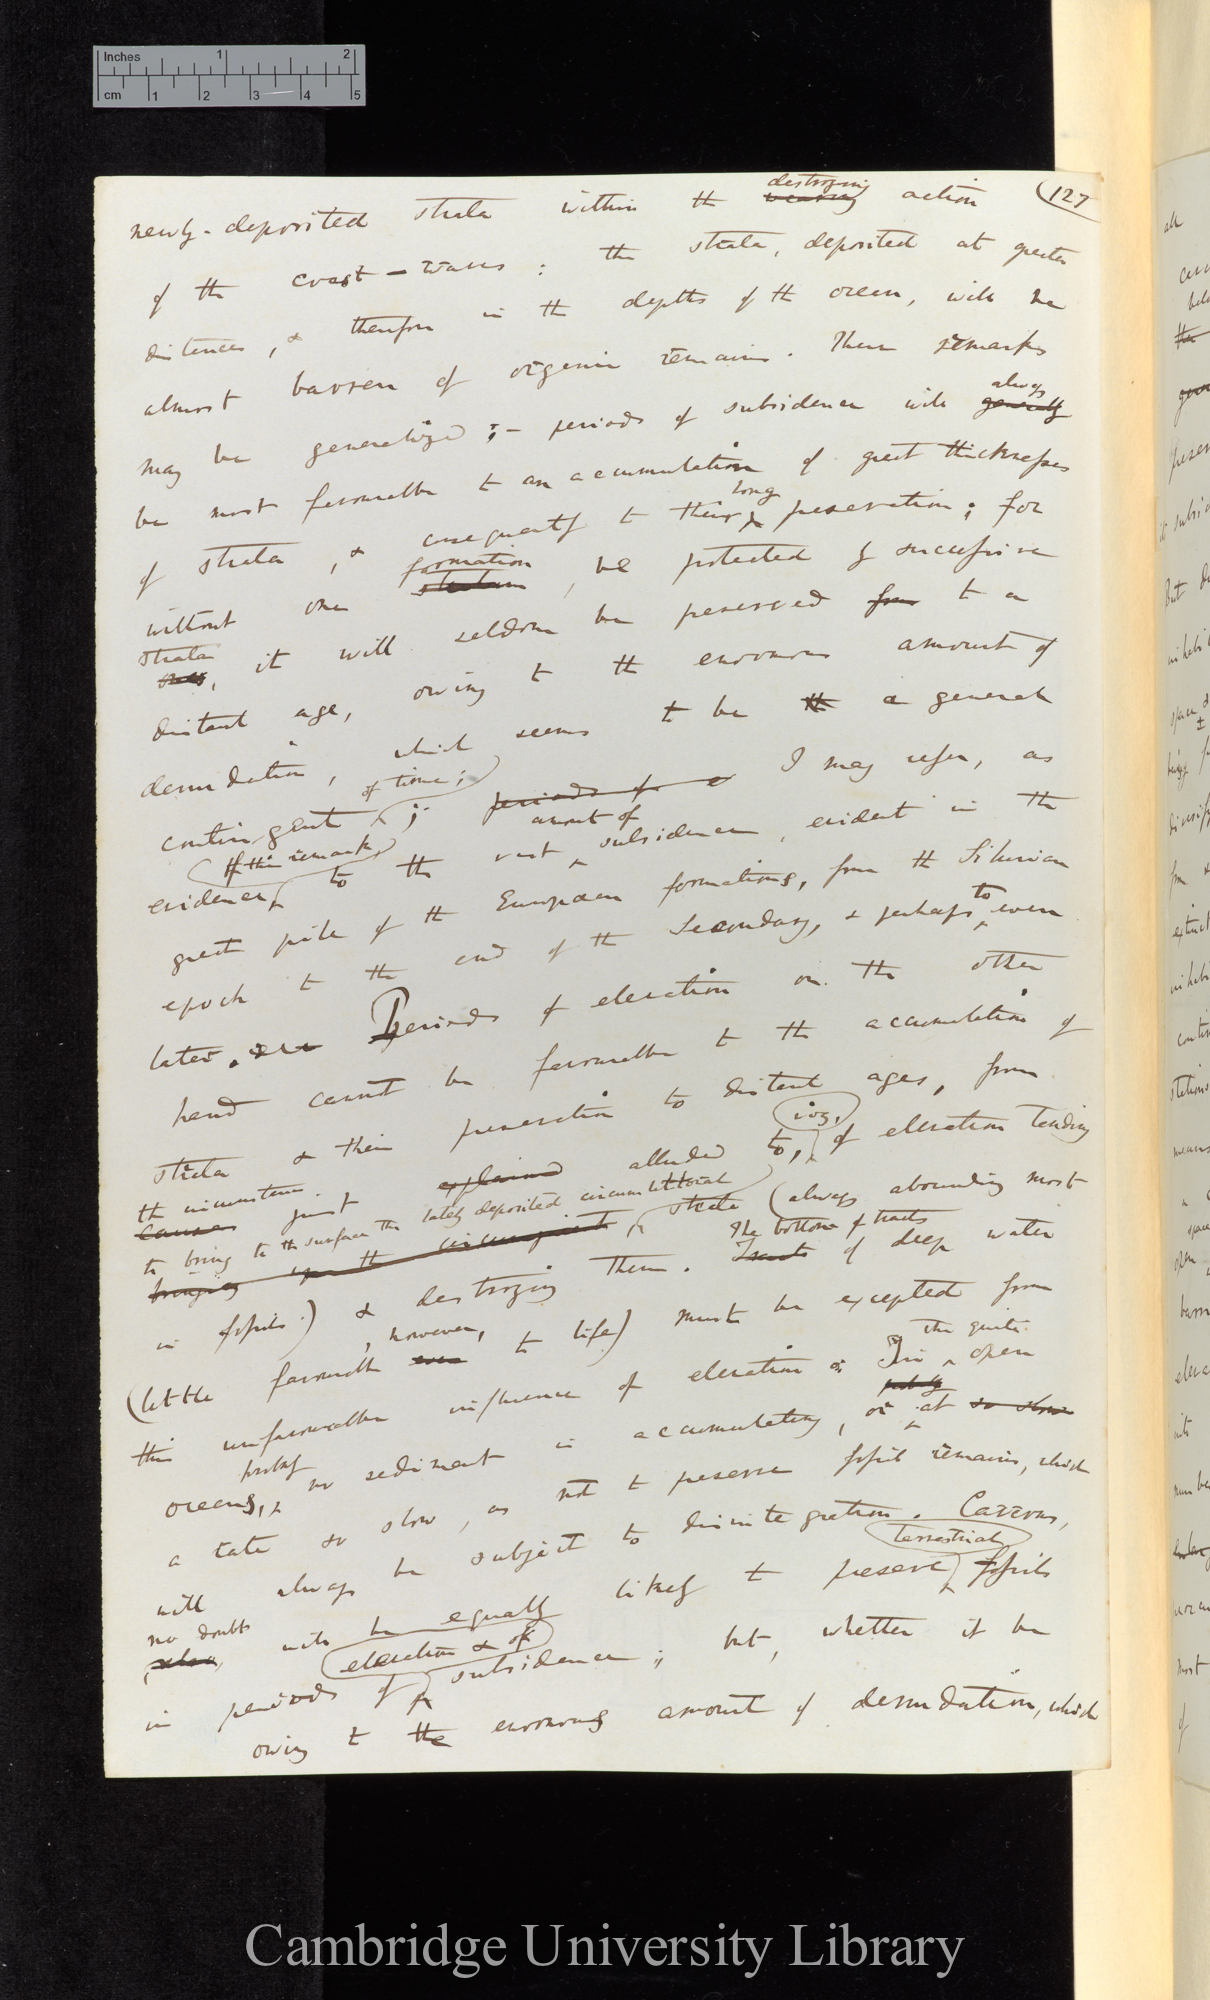 Inches 1 2
cm 1 2 3 4 5
(127
destroying
newly-deposited strata within the wearing action
of the coast-waves: the strata, deposited at greater
distances, & therefore in the depths of the ocean, will be
almost barren of organic remains. These remarks
always
may be generalized;- periods of subsidence will generally
be most favourable to an accumulation of great thicknesses
long
of strata, & consequently to their preservation; for
formation
without one stratum, be protected by successive
strata
ones, it will seldom be preserved from to a
distant age, owing to the enormous amount of
denudation, which seems to be the a general
of time;
contingent; periods of e I may refer, as
of this remark amount of
evidence to the vast subsidence, evident in the
great pile of the European formations, from the Silurian
to
epoch to the end of the Secondary, & perhaps even
later. Periods of elevation on the other
hand cannot be favourable to the accumulation of
strata & their preservation to distant ages, from
the circumstance viz,
causes just explained alluded to, of elevation tending
to bring to the surface the lately deposited circumlittoral
bringing upon the strata (always abounding most
The bottom of tracts
in fossils) & destroying them. Tracts of deep water
, however,
(little favourable even to life) must be excepted from
the quite
this unfavourable influence of elevation. In open
probably
oceans, no sediment is accumulating, or at so slow
a rate so slow, as not to preserve fossil remains, which
will always be subject to disintegration. Caverns,
no doubt terrestrial
, also, will be equally likely to preserve fossils
elevation & of
in periods of subsidence; but, whether it be
owing to the enormous amount of denudation, which
Cambridge University Library